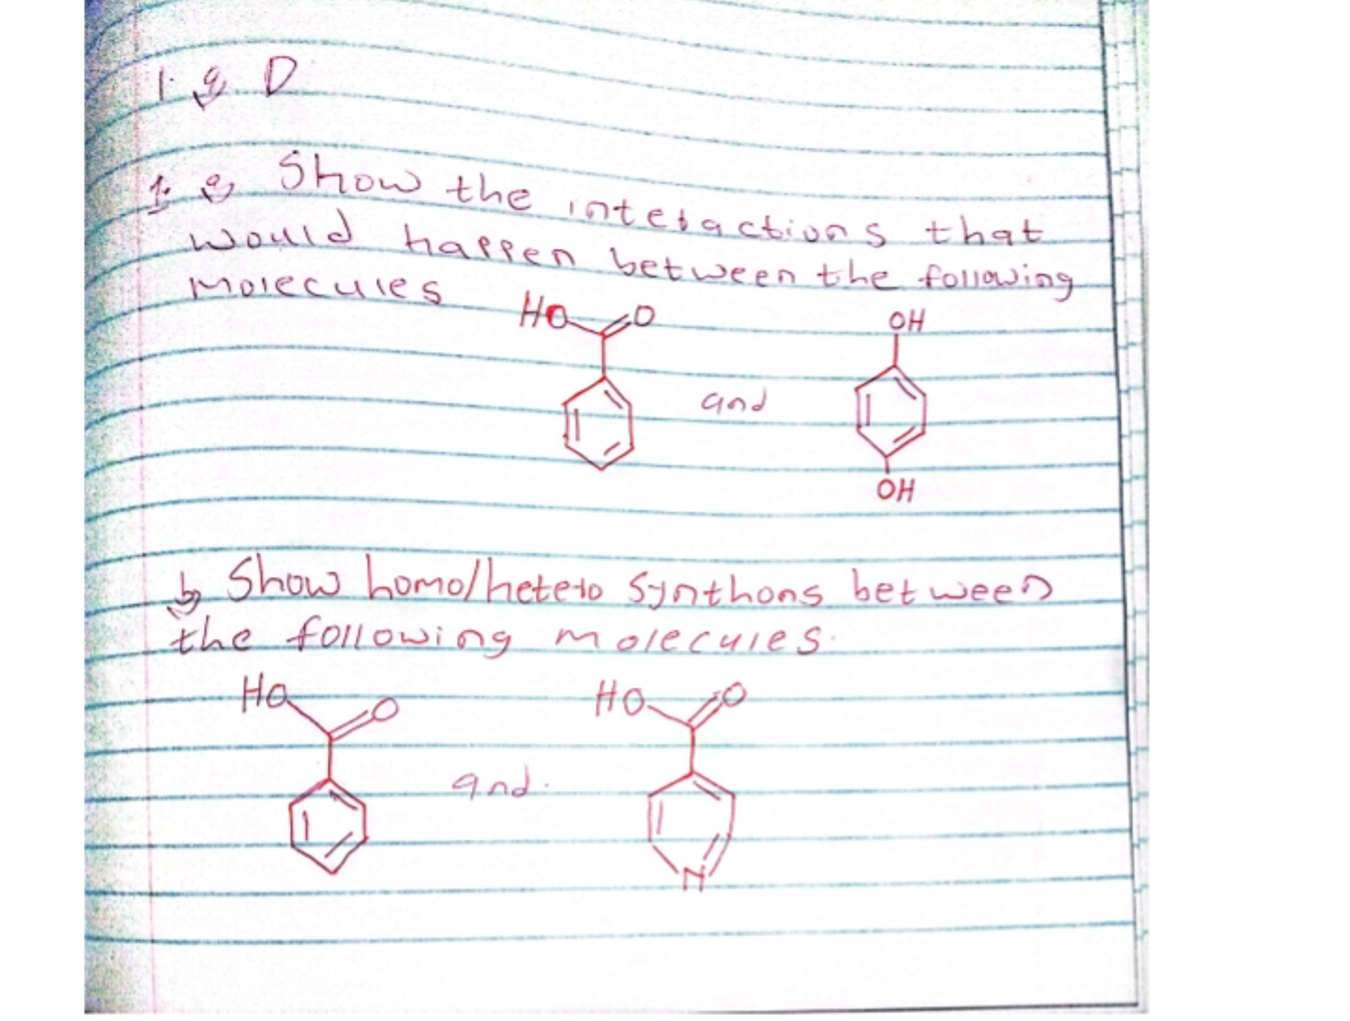 1. a D
1. a, Show the interactions that
would happen between the following
molecules
HO O
OH
and
OH
b, Show homo/hetero synthons between
the following molecules.
HO O HO O
and.
N